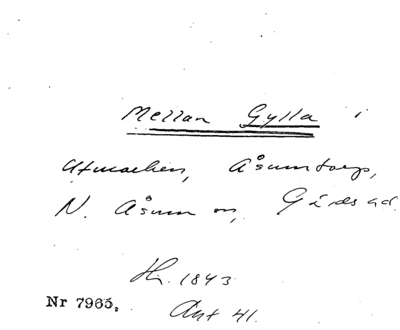 Mellan Gylla i
utmarken, Åsumtorp,
N. Åsum sn, Gärds hd.
Hs. 1843
Nr 7965. Akt 41.